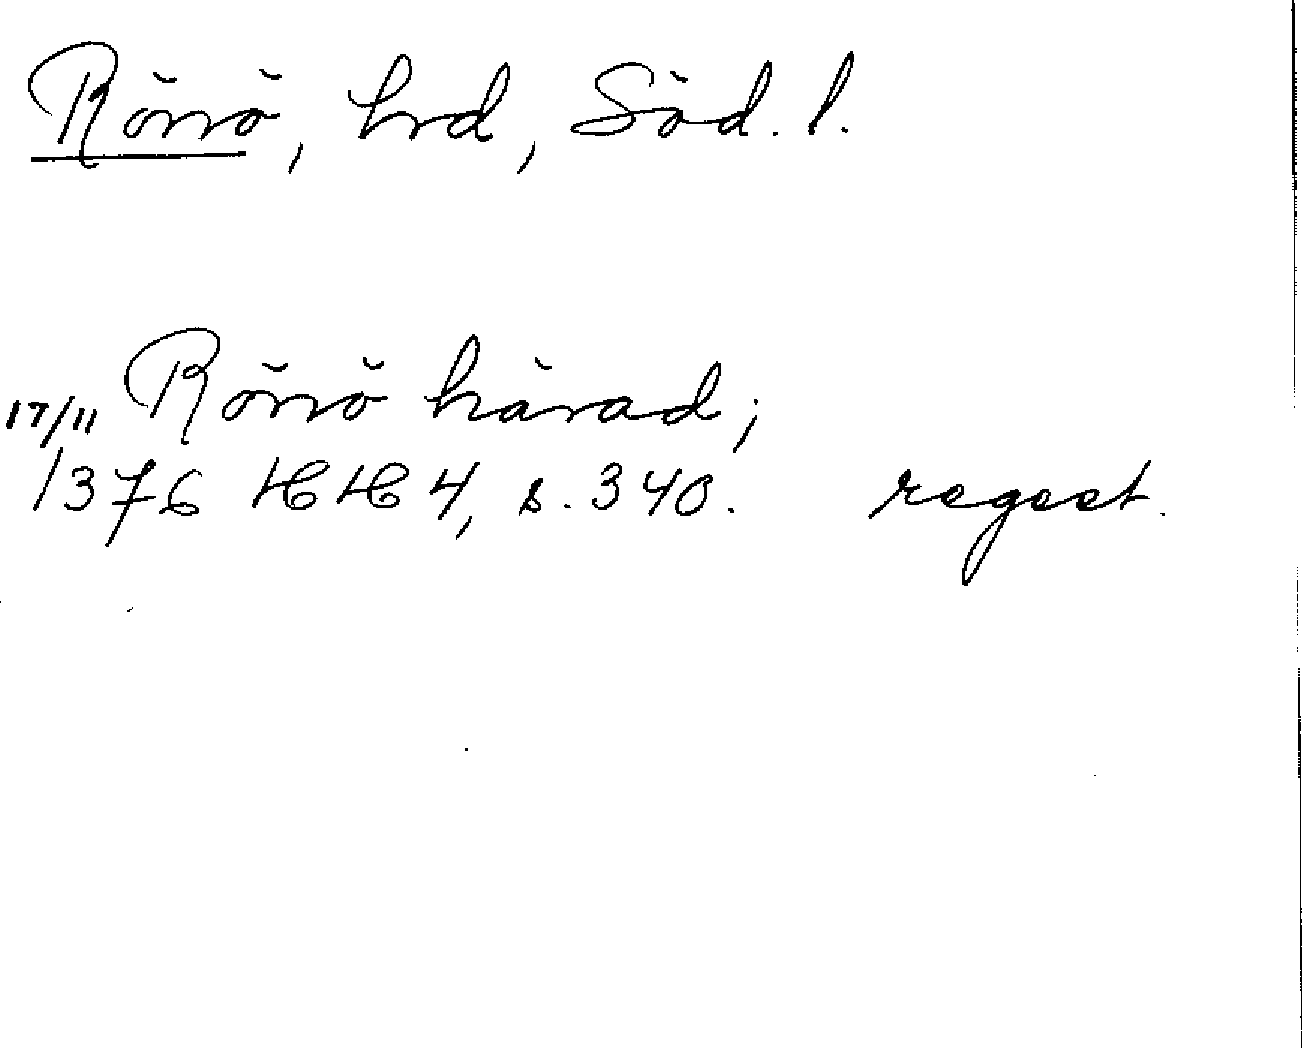 Rönö, hrd, Söd. l.
17/11 Rönö härad;
1376 HH 4, s. 340. regest.